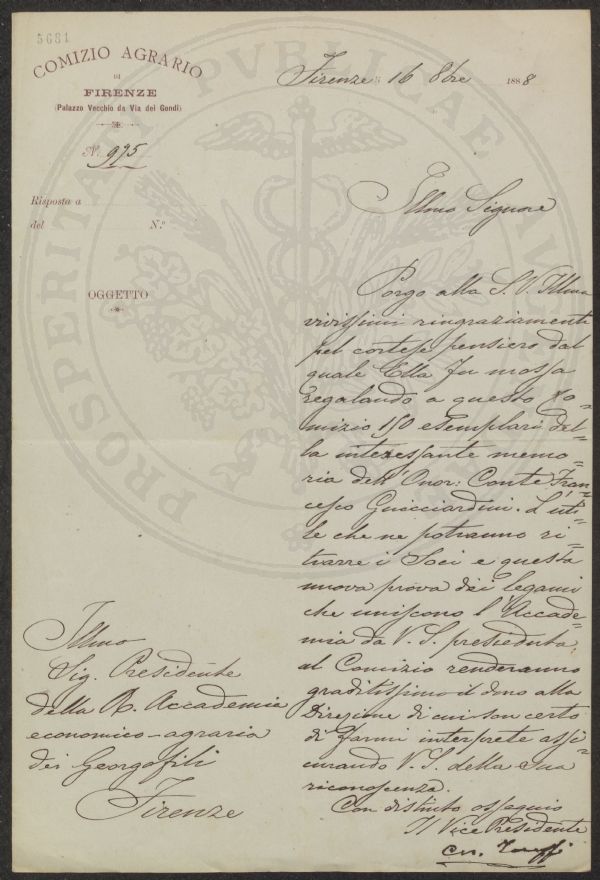 5681
COMIZIO AGRARIO
DI
FIRENZE
(Palazzo Vecchio da Via dei Gondi)
N.º 995
Risposta a
del N.º
OGGETTO
Firenze 16 8bre 1888
Illmo Signore
Porgo alla S. V. Illma
vivissimi ringraziamenti
pel cortese pensiero dal
quale Ella fu mossa
regalando a questo Co=
mizio 150 esemplari del=
la interessante memo=
ria dell' Onor: Conte Fran=
cesco Guicciardini. L'uti=
le che ne potranno ri=
trarre i Soci e questa
nuova prova dei legami
che uniscono l'Accade=
mia da V. S. presieduta
al Comizio renderanno
graditissimo il dono alla
Direzione di cui son certo
di farmi interprete assi=
curando V. S. della sua
riconoscenza.
Con distinto ossequio
Il Vice Presidente
Illmo
Sig. Presidente
della R. Accademia
economico-agraria
dei Georgofili
Firenze
PROSPERITATI PVBLICAE